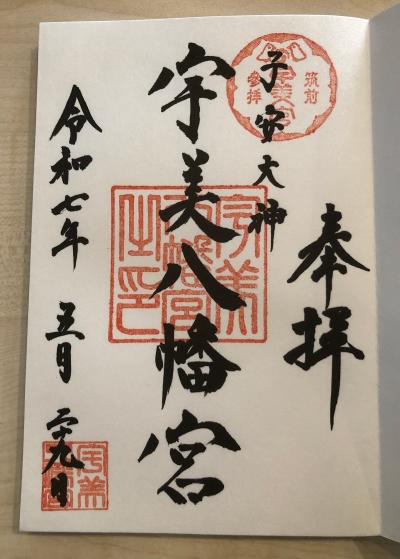 奉拝
筑前
宇美宮
參拝
子安大神
宇美八幡宮
宇美
八幡宮
之印
令和七年 五月 二十九日
宇美